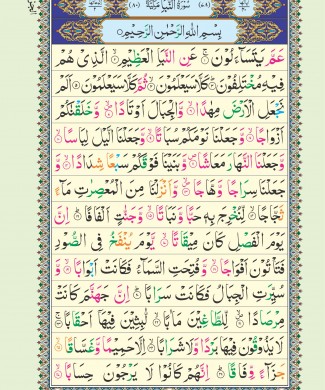 سُوْرَةُ النَّبَاِ مَكِّيَّةٌ
بِسْمِ اللّٰهِ الرَّحْمٰنِ الرَّحِيْمِ
عَمَّ يَتَسَآءَلُوْنَ ۚ﴿۱﴾ عَنِ النَّبَاِ الْعَظِيْمِ ۙ﴿۲﴾ الَّذِيْ هُمْ
فِيْهِ مُخْتَلِفُوْنَ ؕ﴿۳﴾ كَلَّا سَيَعْلَمُوْنَ ۙ﴿۴﴾ ثُمَّ كَلَّا سَيَعْلَمُوْنَ ﴿۵﴾ اَلَمْ
نَجْعَلِ الْاَرْضَ مِهٰدًا ۙ﴿۶﴾ وَّالْجِبَالَ اَوْتَادًا ۪ۙ﴿۷﴾ وَّخَلَقْنٰكُمْ
اَزْوَاجًا ۙ﴿۸﴾ وَّجَعَلْنَا نَوْمَكُمْ سُبَاتًا ۙ﴿۹﴾ وَّجَعَلْنَا الَّيْلَ لِبَاسًا ۙ﴿۱۰﴾
وَّجَعَلْنَا النَّهَارَ مَعَاشًا ۪﴿۱۱﴾ وَّبَنَيْنَا فَوْقَكُمْ سَبْعًا شِدَادًا ۙ﴿۱۲﴾ وَّ
جَعَلْنَا سِرَاجًا وَّهَّاجًا ۪ۙ﴿۱۳﴾ وَّاَنْزَلْنَا مِنَ الْمُعْصِرٰتِ مَآءً
ثَجَّاجًا ۙ﴿۱۴﴾ لِّنُخْرِجَ بِهٖ حَبًّا وَّنَبَاتًا ۙ﴿۱۵﴾ وَّجَنّٰتٍ اَلْفَافًا ؕ﴿۱۶﴾ اِنَّ
يَوْمَ الْفَصْلِ كَانَ مِيْقَاتًا ۙ﴿۱۷﴾ يَّوْمَ يُنْفَخُ فِي الصُّوْرِ
فَتَاْتُوْنَ اَفْوَاجًا ۙ﴿۱۸﴾ وَّفُتِحَتِ السَّمَآءُ فَكَانَتْ اَبْوَابًا ۙ﴿۱۹﴾ وَّ
سُيِّرَتِ الْجِبَالُ فَكَانَتْ سَرَابًا ؕ﴿۲۰﴾ اِنَّ جَهَنَّمَ كَانَتْ
مِرْصَادًا ۪ۙ﴿۲۱﴾ لِّلطَّاغِيْنَ مَاٰبًا ۙ﴿۲۲﴾ لّٰبِثِيْنَ فِيْهَاۤ اَحْقَابًا ۚ﴿۲۳﴾
لَا يَذُوْقُوْنَ فِيْهَا بَرْدًا وَّلَا شَرَابًا ۙ﴿۲۴﴾ اِلَّا حَمِيْمًا وَّغَسَّاقًا ۙ﴿۲۵﴾
جَزَآءً وِّفَاقًا ؕ﴿۲۶﴾ اِنَّهُمْ كَانُوْا لَا يَرْجُوْنَ حِسَابًا ۙ﴿۲۷﴾